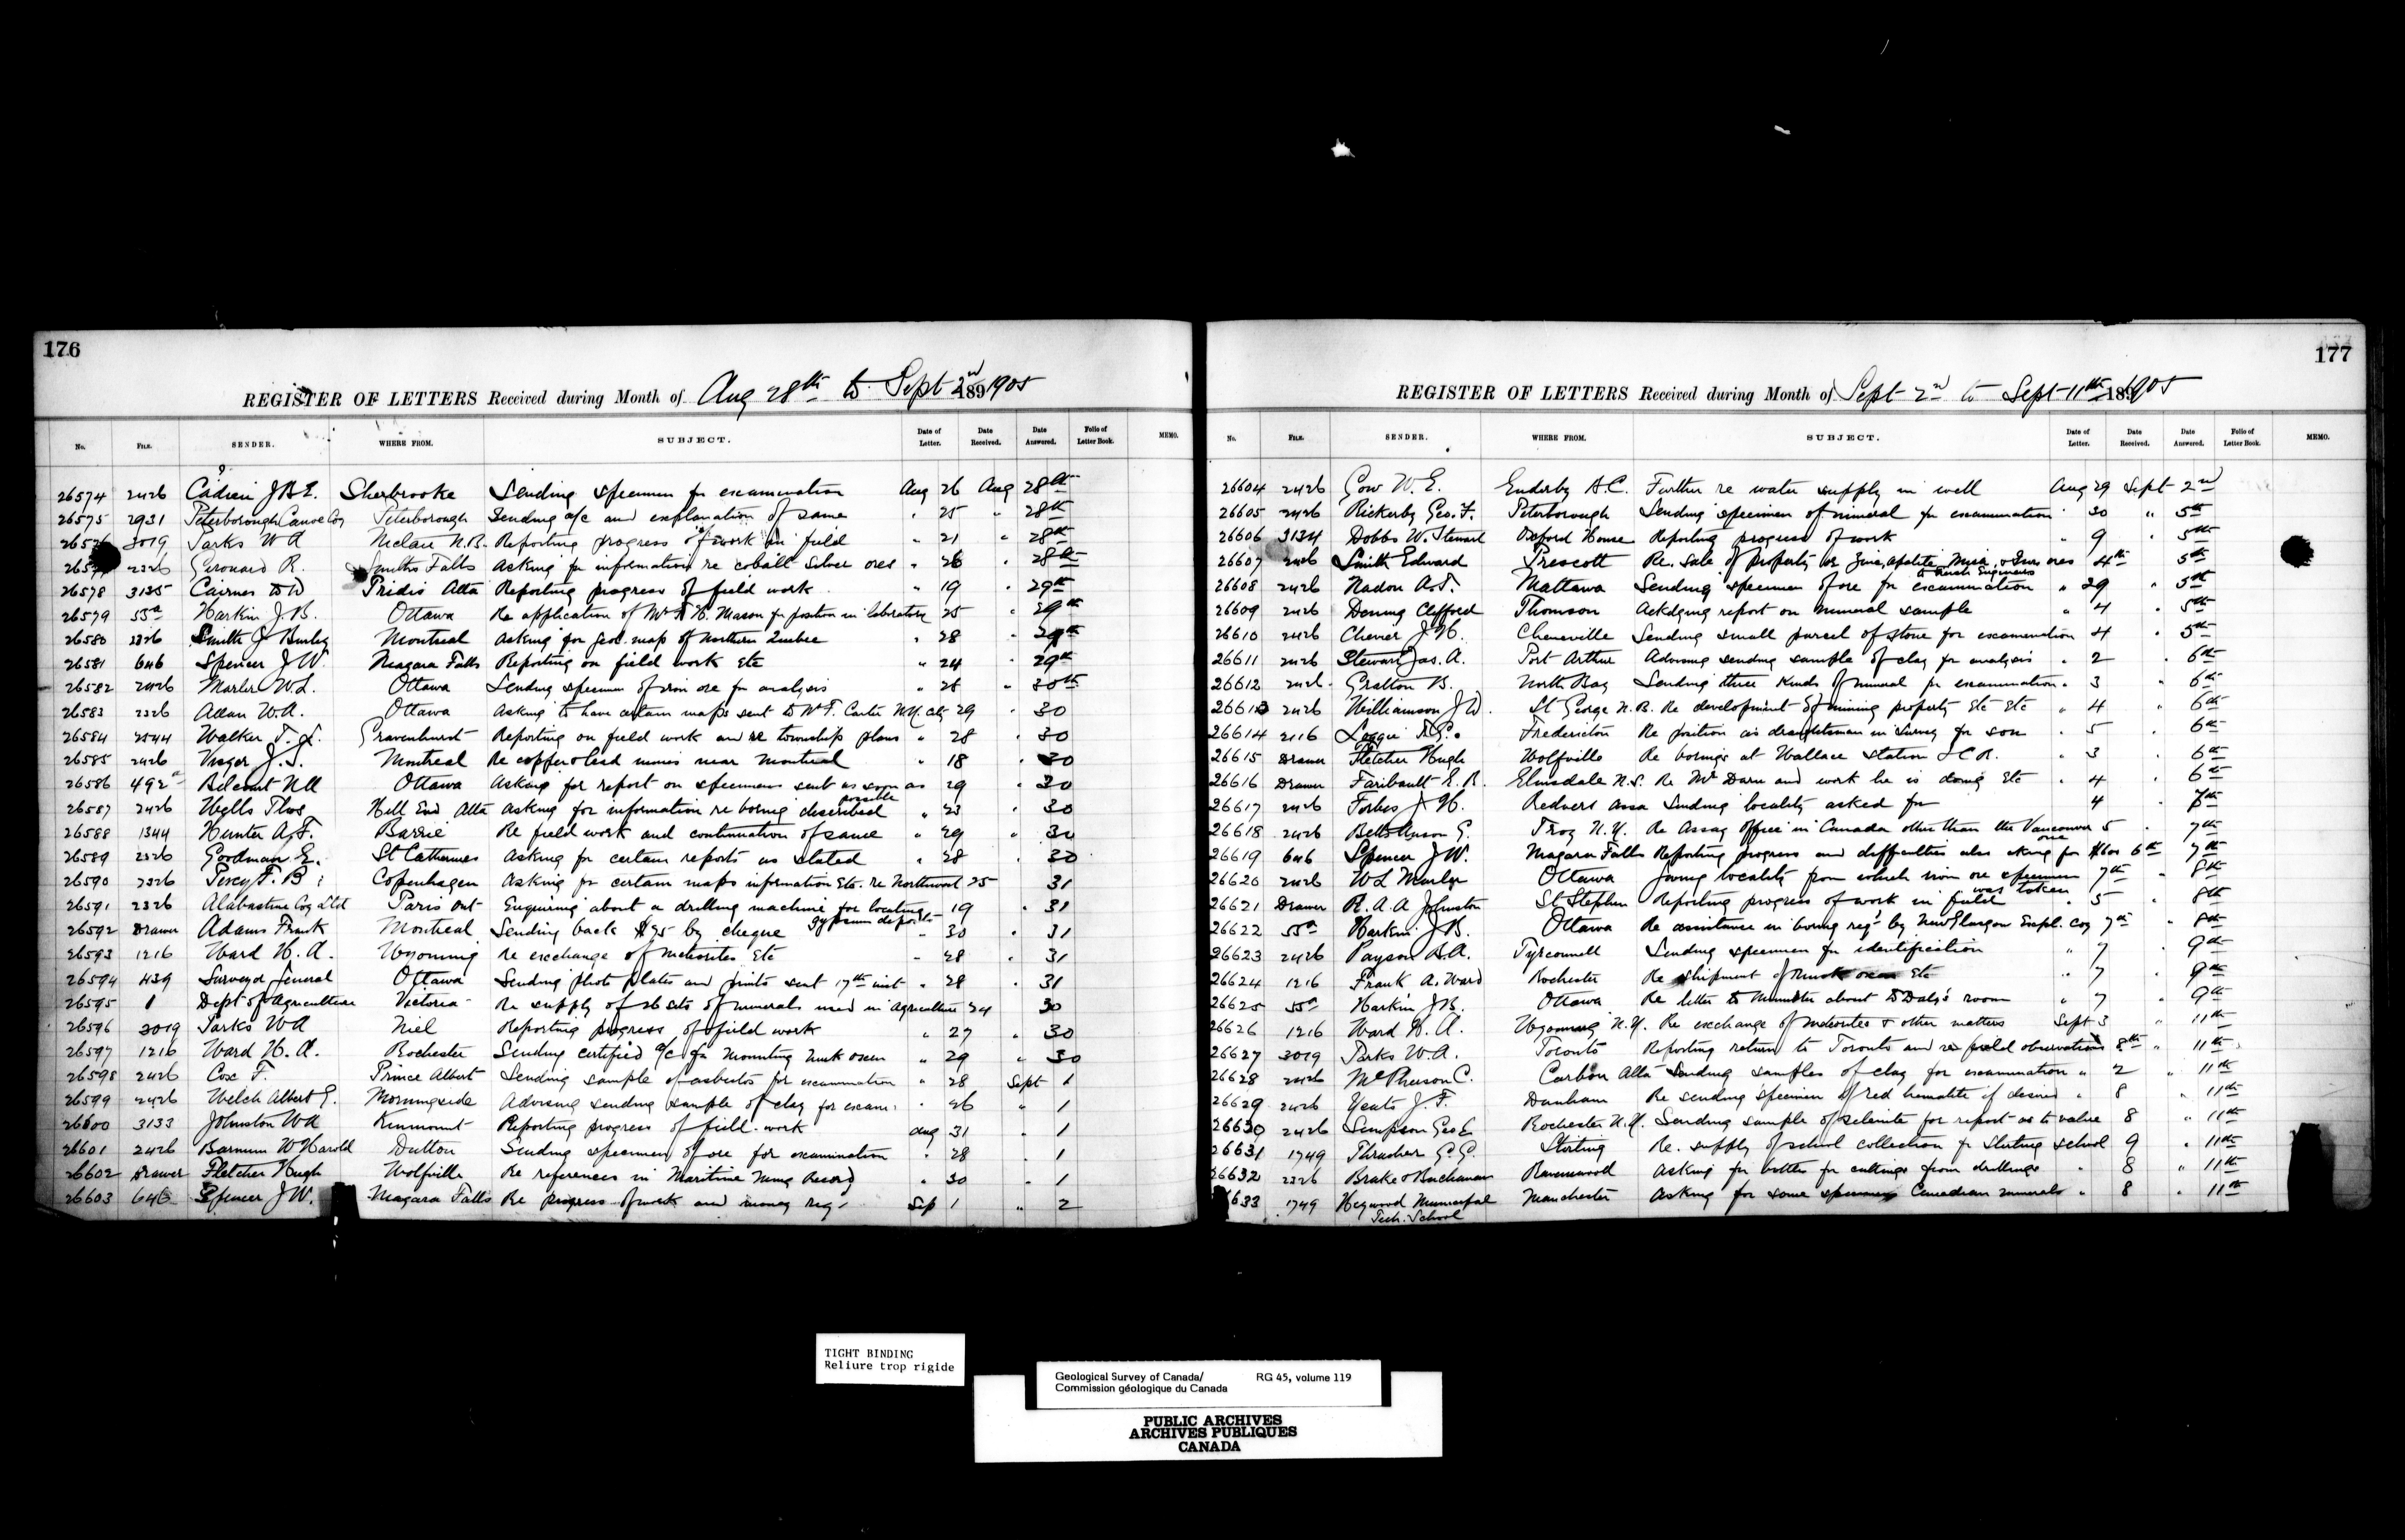 176
REGISTER OF LETTERS Received during Month of Aug 28th to Sept 2nd 1891905
No. FILE. SENDER. WHERE FROM. SUBJECT. Date of Letter. Date Received. Date Answered. Folio of Letter Book. MEMO.
26574 2426 J B E. Sherbrooke Sending specimen for examination Aug 26 Aug 28th
26575 2931 Peterborough Canoe Coy Peterborough Sending a/c and explanation of same " 25 " 28th
3019 Parks W A N.B. Reporting progress of work in field " 21 " 28th
2326 Girouard R. Smiths Falls Asking for information re cobalt silver ores " 26 " 28th
26578 3135 Cairnes D D Pridis Alta Reporting progress of field work " 19 " 29th
26579 55a Harkin J. B. Ottawa Re application of Mason for position in laboratory 25 " 29th
26580 2326 Smith J Montreal Asking for geol. map of Northern Quebec " 28 " 29th
26581 646 Spencer J W. Niagara Falls Reporting on field work Etc " 24 " 29th
26582 2426 Marler W L. Ottawa Sending specimen of iron ore for analysis " 28 " 30th
26583 2326 Allan W. A. Ottawa Asking to have certain maps sent to W F. Carter N.Y. city 29 " 30
26584 2544 Walker T. L. Gravenhurst Reporting on field work and re township plans " 28 " 30
26585 2426 Viager J. S. Montreal Re copper & lead mines near Montreal " 18 " 30
26586 492a Belcourt N A Ottawa Asking for report on specimens sent as soon as possible 29 " 30
26587 2426 Wells Thos Hill End Alta Asking for information re boring described " 23 " 30
26588 1344 Hunter A. F. Barrie Re field work and continuation of same " 29 " 30
26589 2326 Goodman E. St Catharines Asking for certain reports as stated " 28 " 30
26590 2326 Percy F. B. Copenhagen Asking for certain maps information Etc. re Northwest 25 31
26591 2326 Alabastine Coy Ltd Paris Ont Enquiring about a drilling machine for locating gypsum deposits 19 " 31
26592 Drawer Adams Frank Montreal Sending back $95 by cheque " 30 " 31
26593 1216 Ward H. A. Wyoming re exchange of meteorites Etc " 28 " 31
26594 439 Surveyor General Ottawa Sending photo plates and prints sent 17th inst " 28 " 31
26595 1 Dept of Agriculture Victoria Re supply of 26 sets of minerals used in Agriculture 24 30
26596 3019 Parks W A Niel Reporting progress of field work " 27 " 30
26597 1216 Ward H. A. Rochester Sending certified a/c for mounting musk oxen " 29 " 30
26598 2426 Cox F. Prince Albert Sending sample of asbestos for examination " 28 Sept 1
26599 2426 Welch Albert E. Morningside Advising sending sample of clay for exam: " 26 " 1
26600 3133 Johnston W A Kinmount Reporting progress of field work Aug 31 " 1
26601 2426 Barnum W Harold Dutton Sending specimen of ore for examination " 28 " 1
26602 Drawer Fletcher Hugh Wolfville Re references in Maritime Mining Record " 30 " 1
26603 646 Spencer J W. Niagara Falls Re progress of work and money req. Sep 1 " 2
177
REGISTER OF LETTERS Received during Month of Sept 2nd to Sept 11th 1891905
No. FILE. SENDER. WHERE FROM. SUBJECT. Date of Letter. Date Received. Date Answered. Folio of Letter Book. MEMO.
26604 2426 Gow W. E. Enderby B.C. Further re water supply in well Aug 29 Sept 2nd
26605 2426 Rickerby Geo. F. Peterborough Sending specimen of mineral for examination 30 " 5th
26606 3134 Dobbs W. Stewart Oxford House Reporting progress of work " 9 " 5th
26607 2426 Smith Edward Prescott Re. sale of property Zinc, apatite, Mica, & Iron ores 4th 5th
26608 2426 Nadon A. T. Mattawa Sending specimen of ore for examination " 29 " 5th
26609 2426 Denning Clifford Thomson Ackdging report on mineral sample " 4 " 5th
26610 2426 Chenier J. H. Cheneville Sending small parcel of stone for examination 4 " 5th
26611 2426 Stewart Jas. A. Port Arthur Advising sending sample of clay for analysis " 2 " 6th
26612 2426 Gratton B. North Bay Sending three kinds of mineral for examination " 3 " 6th
26613 2426 Williamson J W. St George N.B. Re development of mining property Etc Etc " 4 " 6th
26614 2116 Loggie T. G. Fredericton Re position as draughtsman in Survey for son " 5 " 6th
26615 Drawer Fletcher Hugh Wolfville Re borings at Wallace station I C R. " 3 " 6th
26616 Drawer Faribault E. R. Elmsdale N.S. Re Mr and work he is doing Etc " 4 " 6th
26617 2426 Forbes J H. Redvers Assa Sending locality asked for 4 " 7th
26618 2426 Betts Anson G. Troy N.Y. Re Assay Office in Canada other than the Vancouver one 5 " 7th
26619 646 Spencer J W. Niagara Falls Reporting progress and difficulties also asking for 6th " 7th
26620 2426 W L Marler Ottawa Giving locality from which iron ore specimen was taken 7th " 8th
26621 Drawer R. A. A Johnston St Stephen Reporting progress of work in field " 5 " 8th
26622 55a Harkin J. B. Ottawa Re assistance in boring req. by New Glasgow Expl. Coy 7th " 8th
26623 2426 Payson B. A. Tyrconnell Sending specimen for identification " 7 " 9th
26624 1216 Frank A. Ward Rochester Re shipment of Musk oxen Etc " 7 " 9th
26625 55a Harkin J B. Ottawa Re letter to Minister about Dr Daly's room " 7 " 9th
26626 1216 Ward H. A. Wyoming N.Y. Re exchange of meteorites & other matters Sept 3 " 11th
26627 3019 Parks W. A. Toronto Reporting return to Toronto and re field observations 8th " 11th
26628 2426 McPherson C. Carbon Alta Sending samples of clay for examination " 2 " 11th
26629 2426 Yeats J. F. Dunham Re sending specimen of red hematite if desired " 8 " 11th
26630 2426 Simpson Geo E Rochester N.Y. Sending sample of selenite for report as to value 8 " 11th
26631 1749 Thrasher G. G. Stirling Re. supply of school collection for Stirling school 9 " 11th
26632 2326 Brake & Buchanan Ravenswood Asking for bottles for cuttings from drillings " 8 " 11th
1749 Heywood Municipal Tech. School Manchester Asking for some specimens Canadian minerals " 8 " 11th
TIGHT BINDING
Reliure trop rigide
Geological Survey of Canada/ RG 45, volume 119
Commission géologique du Canada
PUBLIC ARCHIVES
ARCHIVES PUBLIQUES
CANADA